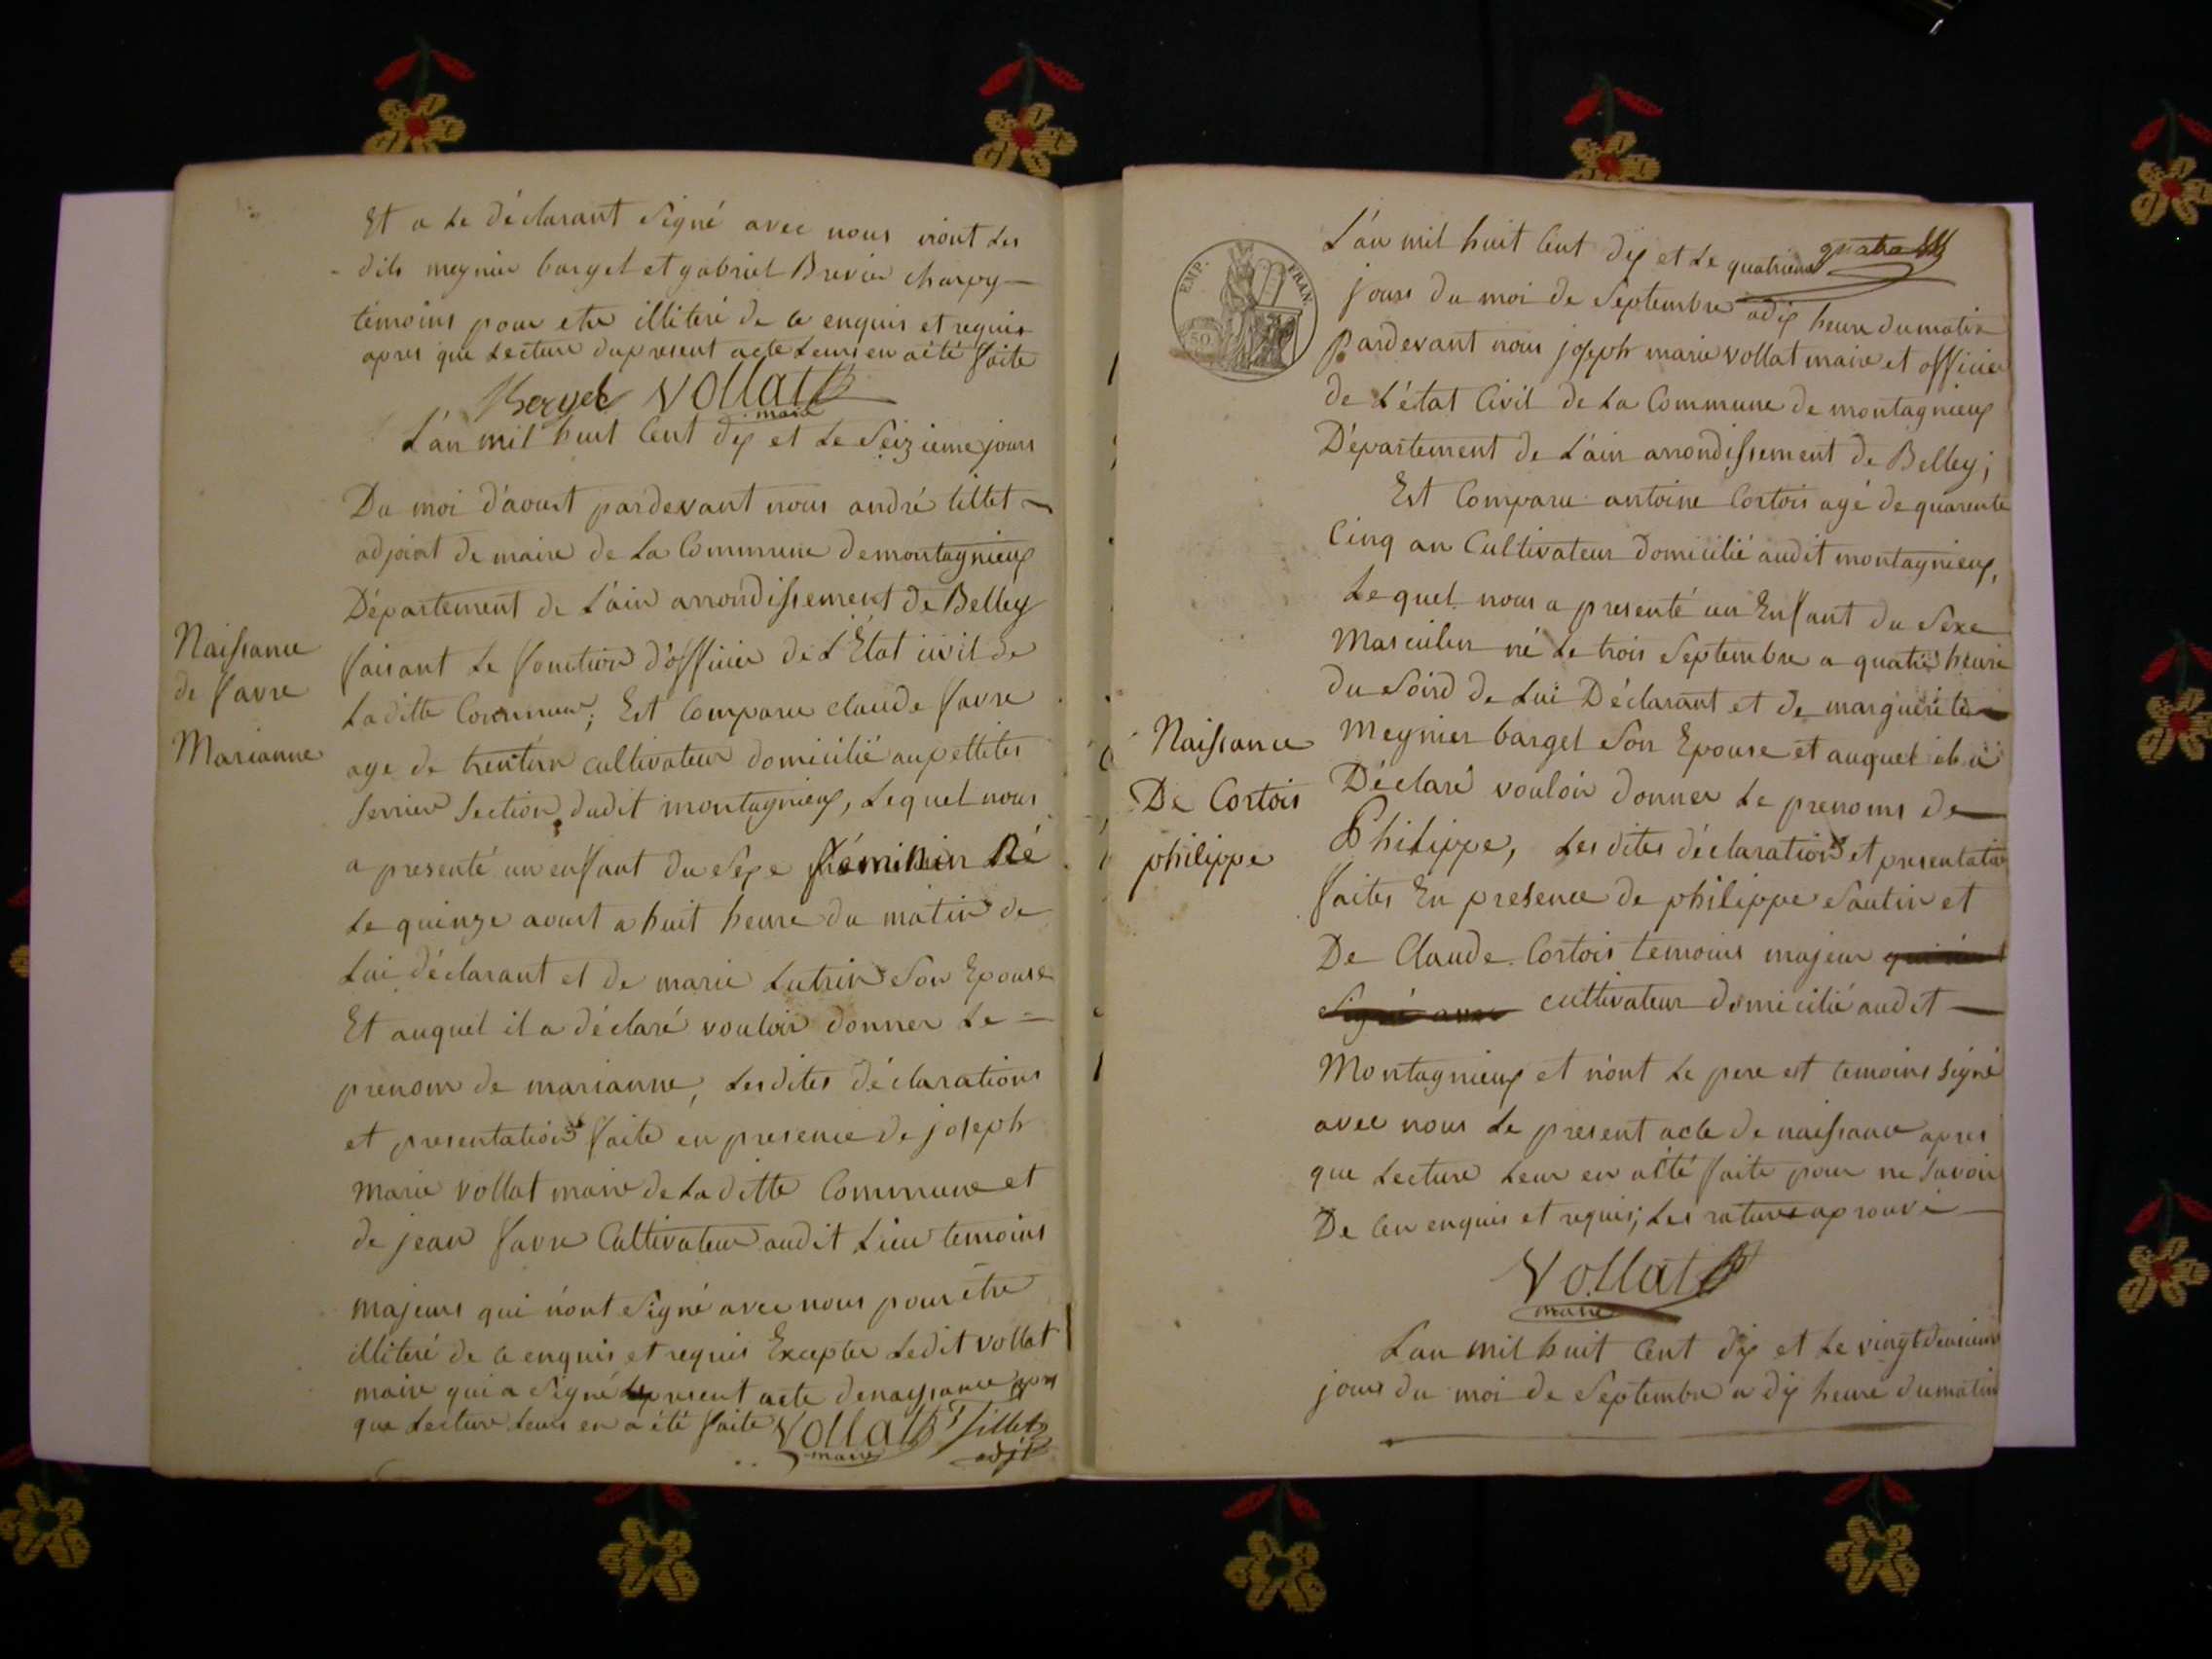 Et a le déclarant Signé avec nous n'ont les
dits meynier bargel et gabriel Brevier charpy
témoins pour etre illiteré de ce enquis et requis
apres que Lecture du present acte Leurs en a été faite
Bergel VOllat
maire
L'án mil huit Cent dix et Le Seizieme jours
Du moi d'aoust pardevant nous andré tillet
adjoint de maire de La Commune de montagnieux
Département de L'áin arrondissement de Belley
faisant Le fonction d'officier de L'État civil de
Naissance
de favre
Marianne
Laditte Commune; Est Comparu claude favre
age de trent'un cultivateur domicilié aupettites
Serrier Section dudit montagnieux, Lequel nous
a presenté un enfant du Sexe féminin Né
Le quinze aoust a huit heure du matin de
Lui déclarant et de marie Lutrin Son Epouse
Et auquel il a déclaré vouloir donner Le =
prenom de marianne, Lesdites déclarations
et presentation faite en presence de joseph
Marie vollat maire de Laditte Commune et
de jean favre Cultivateur audit Lieu temoins
majeurs qui n'ont Signé avec nous pour être
illiteré de ce enquis et requis Excepter Ledit vollat
maire qui a Signé Le present acte de naissance apres
que Lecture Leurs en a été faite VOllat Tillet
maire adjt
EMP. FRAN.
50
L'án mil huit Cent dix et Le quatrieme
jours du moi de Septembre a dix heure du matin
Pardevant nous joseph marie vollat maire et officier
de L'état Civil de La Commune de montagnieux
Département de L'áin arrondissement de Belley;
Est Comparu antoine Cortois agé de quarente
Cinq an Cultivateur domicilié audit montagnieux,
Lequel nous a presenté un Enfant du Sexe
Masculin né Le trois Septembre a quatre heure
du Soird de Lui Déclarant et de marguerite
Naissance
De Cortois
philippe
Meynier bargel Son Epouse et auquel il a
Déclaré vouloir donner Le prenoms de
Philippe, Lesdites déclaration et presentation
faites En presence de philippe Sautin et
De Claude Cortois temoins majeur
Signé avec cultivateur domicilié audit
Montagnieux et n'ont Le pere et temoins signé
avec nous Le present acte de naissance apres
que Lecture Leur en a été faite pour ne savoir
De Ceu enquis et requis; Les rature aprouvé
VOllat
maire
L'an mil huit Cent dix et Le vingt deuxieme
jours du moi de Septembre a dix heure du matin